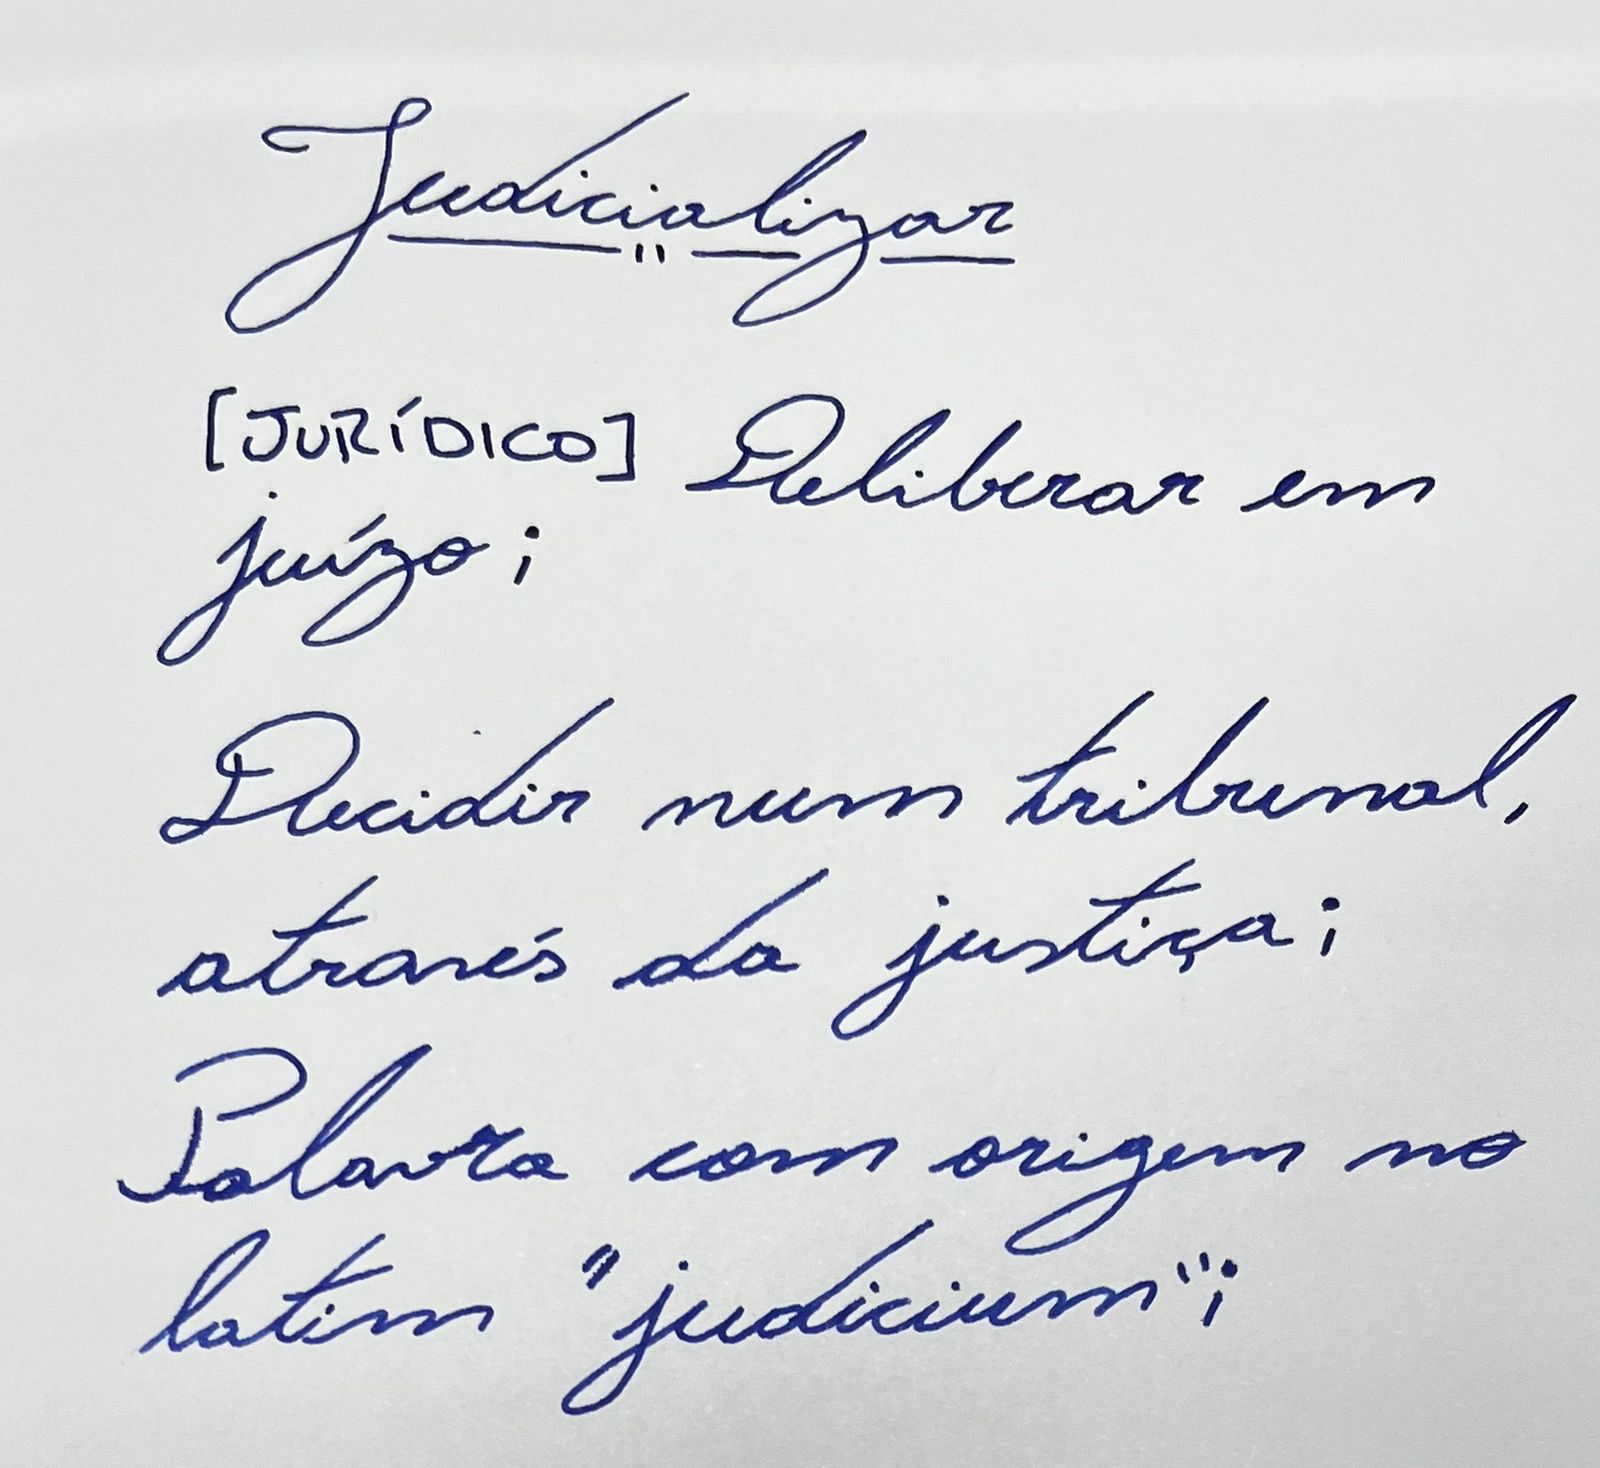 Judicializar
[JURÍDICO] Deliberar em
juízo;
Decidir num tribunal,
através da justiça;
Palavra com origem no
latim "judicium";